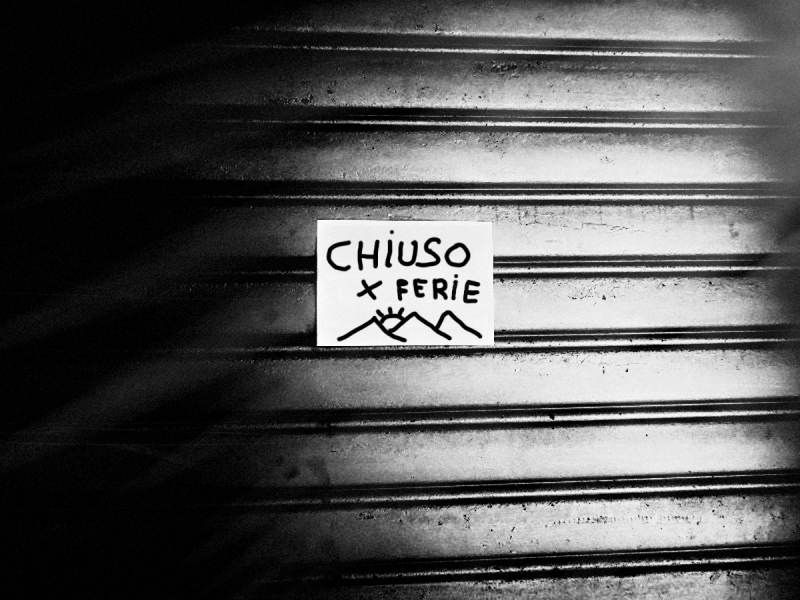 CHiUSO
x FERiE